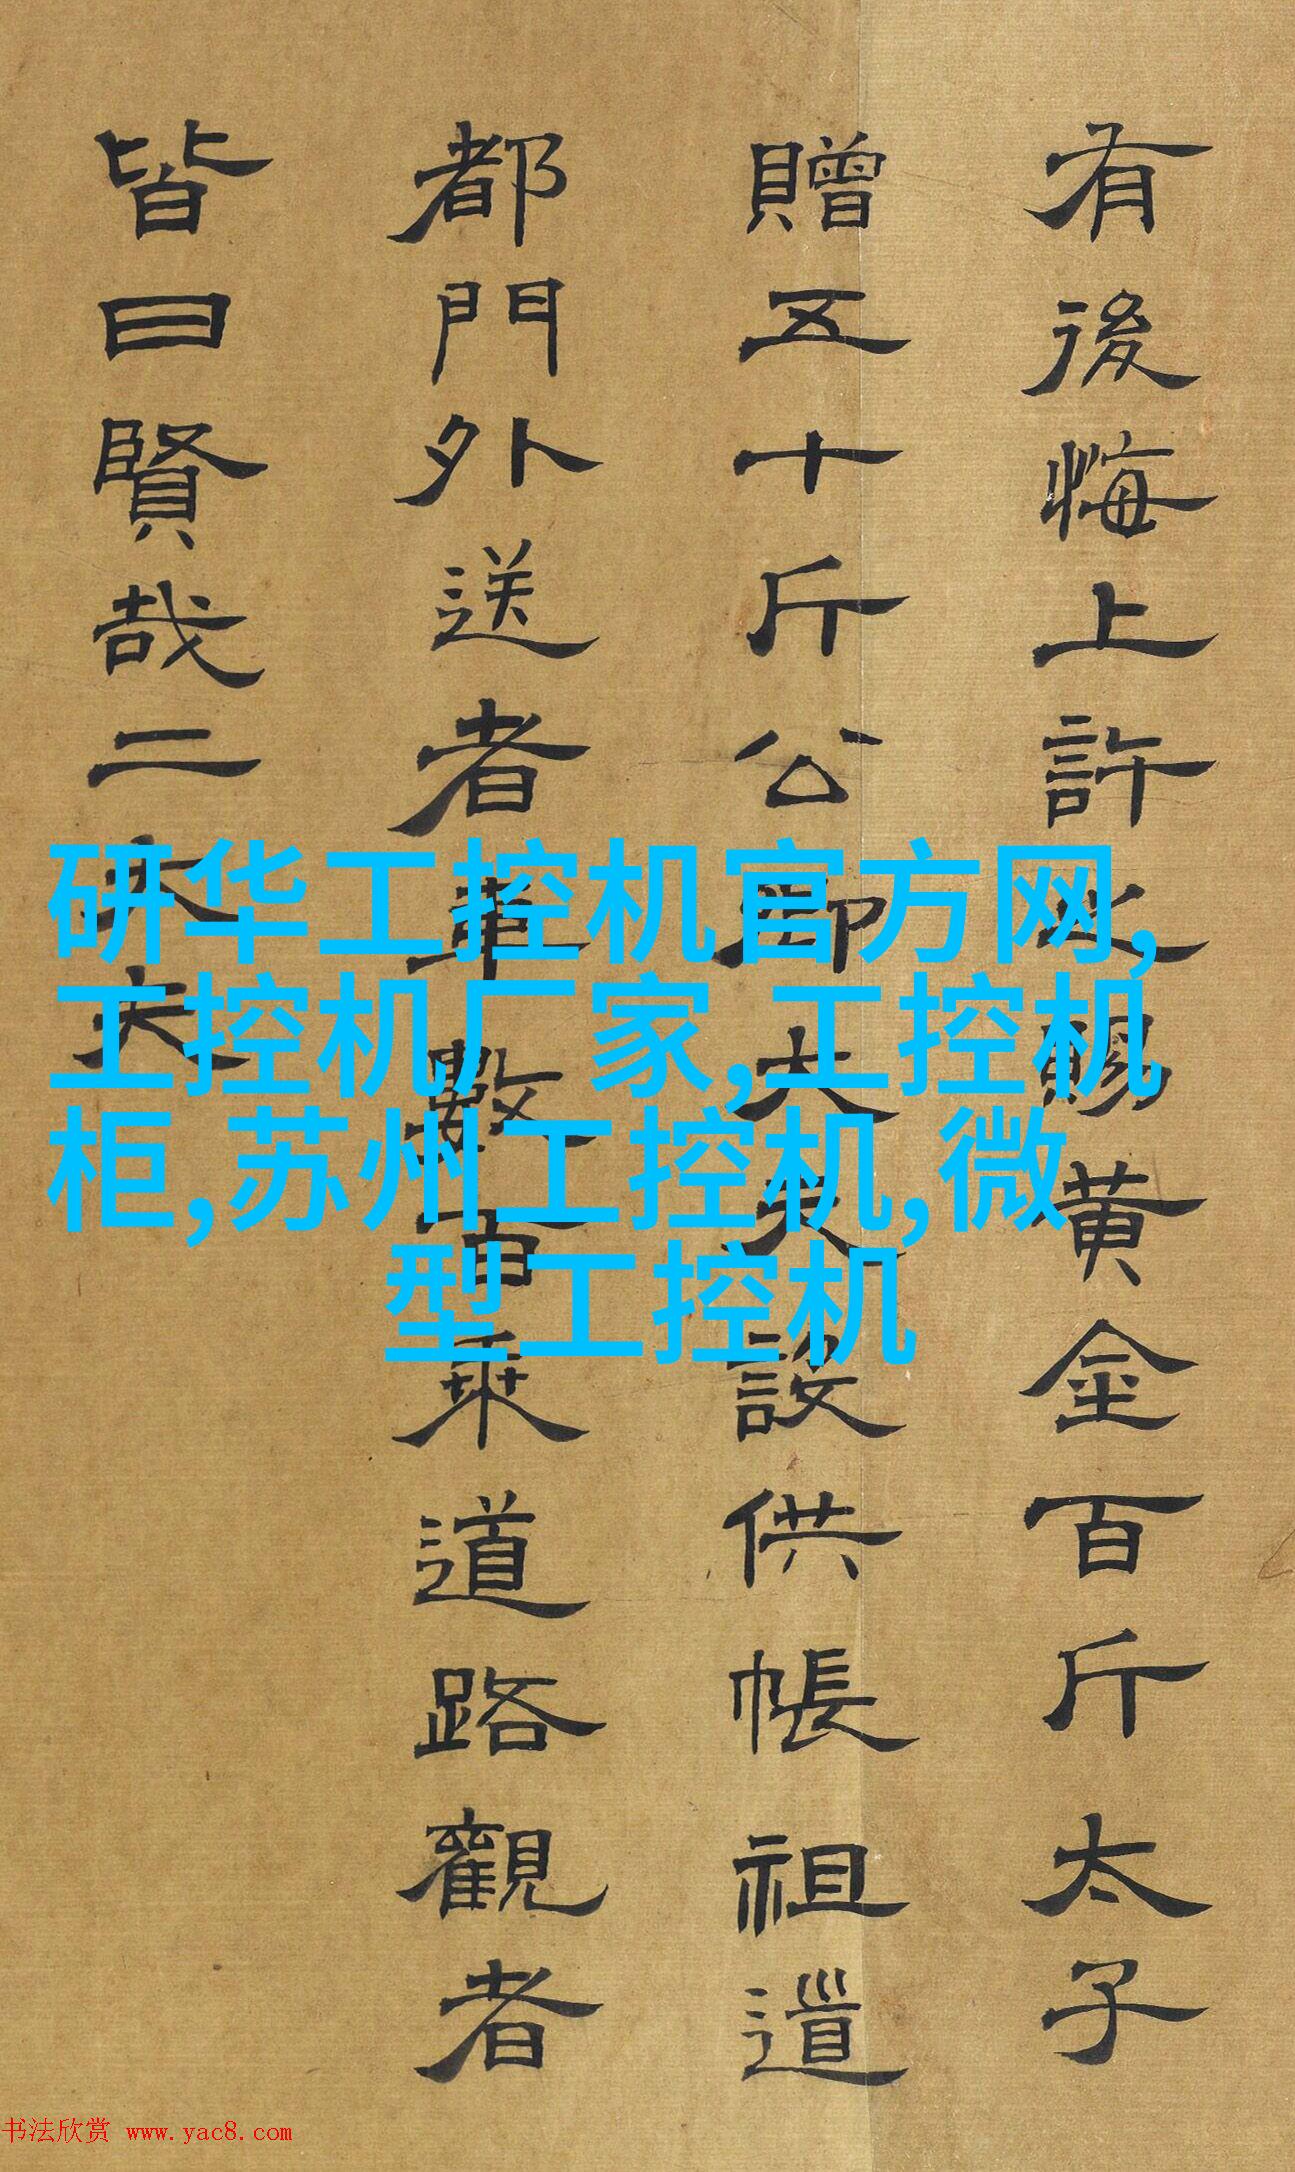 有後悔上許之賜黃金百斤太子
贈五十斤公卿大夫設供帳祖道
都門外送者車數百乘道路觀者
皆曰賢哉二大夫
研华工控机官方网,
工控机厂家,工控机
柜,苏州工控机,微
型工控机
书法欣赏 www.yac8.com